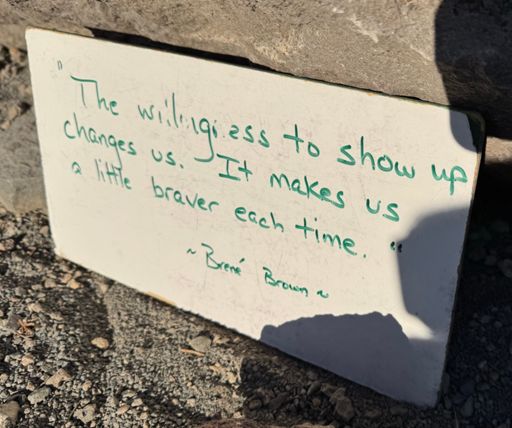 "The willingness to show up
changes us. It makes us
a little braver each time."
~ Brené Brown ~